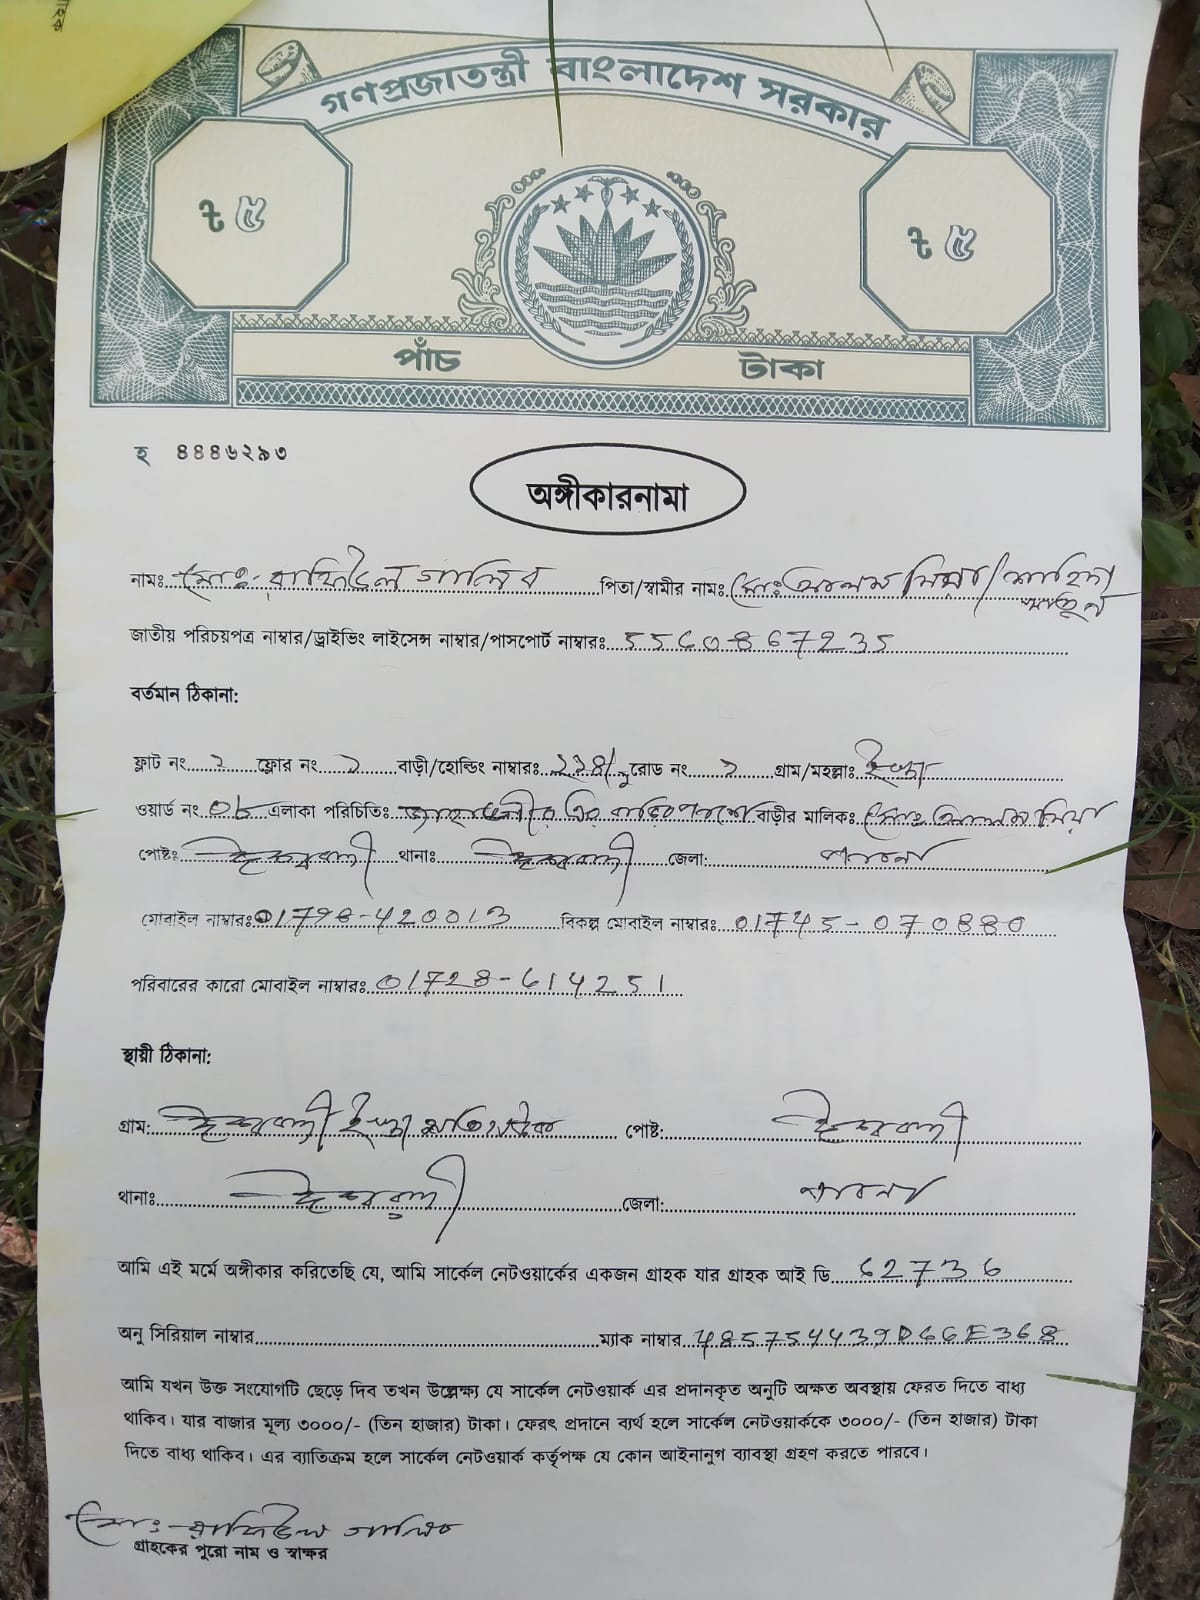 গণপ্রজাতন্ত্রী বাংলাদেশ সরকার
৳ ৫ ৳ ৫
পাঁচ টাকা
হ ৪৪৪৬২৯৩
অঙ্গীকারনামা
নামঃ মোঃ গালিব পিতা/স্বামীর নামঃ মোঃ আলম মিয়া/
জাতীয় পরিচয়পত্র নাম্বার/ড্রাইভিং লাইসেন্স নাম্বার/পাসপোর্ট নাম্বারঃ 5560867235
বর্তমান ঠিকানা:
ফ্লাট নং ফ্লোর নং বাড়ী/হোল্ডিং নাম্বারঃ রোড নং গ্রাম/মহল্লাঃ
ওয়ার্ড নং এলাকা পরিচিতিঃ বাড়ীর মালিকঃ মোঃ আলম মিয়া
পোষ্টঃ ঈশ্বরদী থানাঃ ঈশ্বরদী জেলা: পাবনা
মোবাইল নাম্বারঃ 01798-420013 বিকল্প মোবাইল নাম্বারঃ 01745-070880
পরিবারের কারো মোবাইল নাম্বারঃ 01728-614251
স্থায়ী ঠিকানা:
গ্রাম: ঈশ্বরদী পোষ্ট: ঈশ্বরদী
থানাঃ ঈশ্বরদী জেলা: পাবনা
আমি এই মর্মে অঙ্গীকার করিতেছি যে, আমি সার্কেল নেটওয়ার্কের একজন গ্রাহক যার গ্রাহক আই ডি 62736
অনু সিরিয়াল নাম্বার ম্যাক নাম্বার 485754439D66E368
আমি যখন উক্ত সংযোগটি ছেড়ে দিব তখন উল্লেক্ষ্য যে সার্কেল নেটওয়ার্ক এর প্রদানকৃত অনুটি অক্ষত অবস্থায় ফেরত দিতে বাধ্য
থাকিব। যার বাজার মূল্য ৩০০০/- (তিন হাজার) টাকা। ফেরৎ প্রদানে ব্যর্থ হলে সার্কেল নেটওয়ার্ককে ৩০০০/- (তিন হাজার) টাকা
দিতে বাধ্য থাকিব। এর ব্যাতিক্রম হলে সার্কেল নেটওয়ার্ক কর্তৃপক্ষ যে কোন আইনানুগ ব্যাবস্থা গ্রহণ করতে পারবে।
মোঃ গালিব
গ্রাহকের পুরো নাম ও স্বাক্ষর